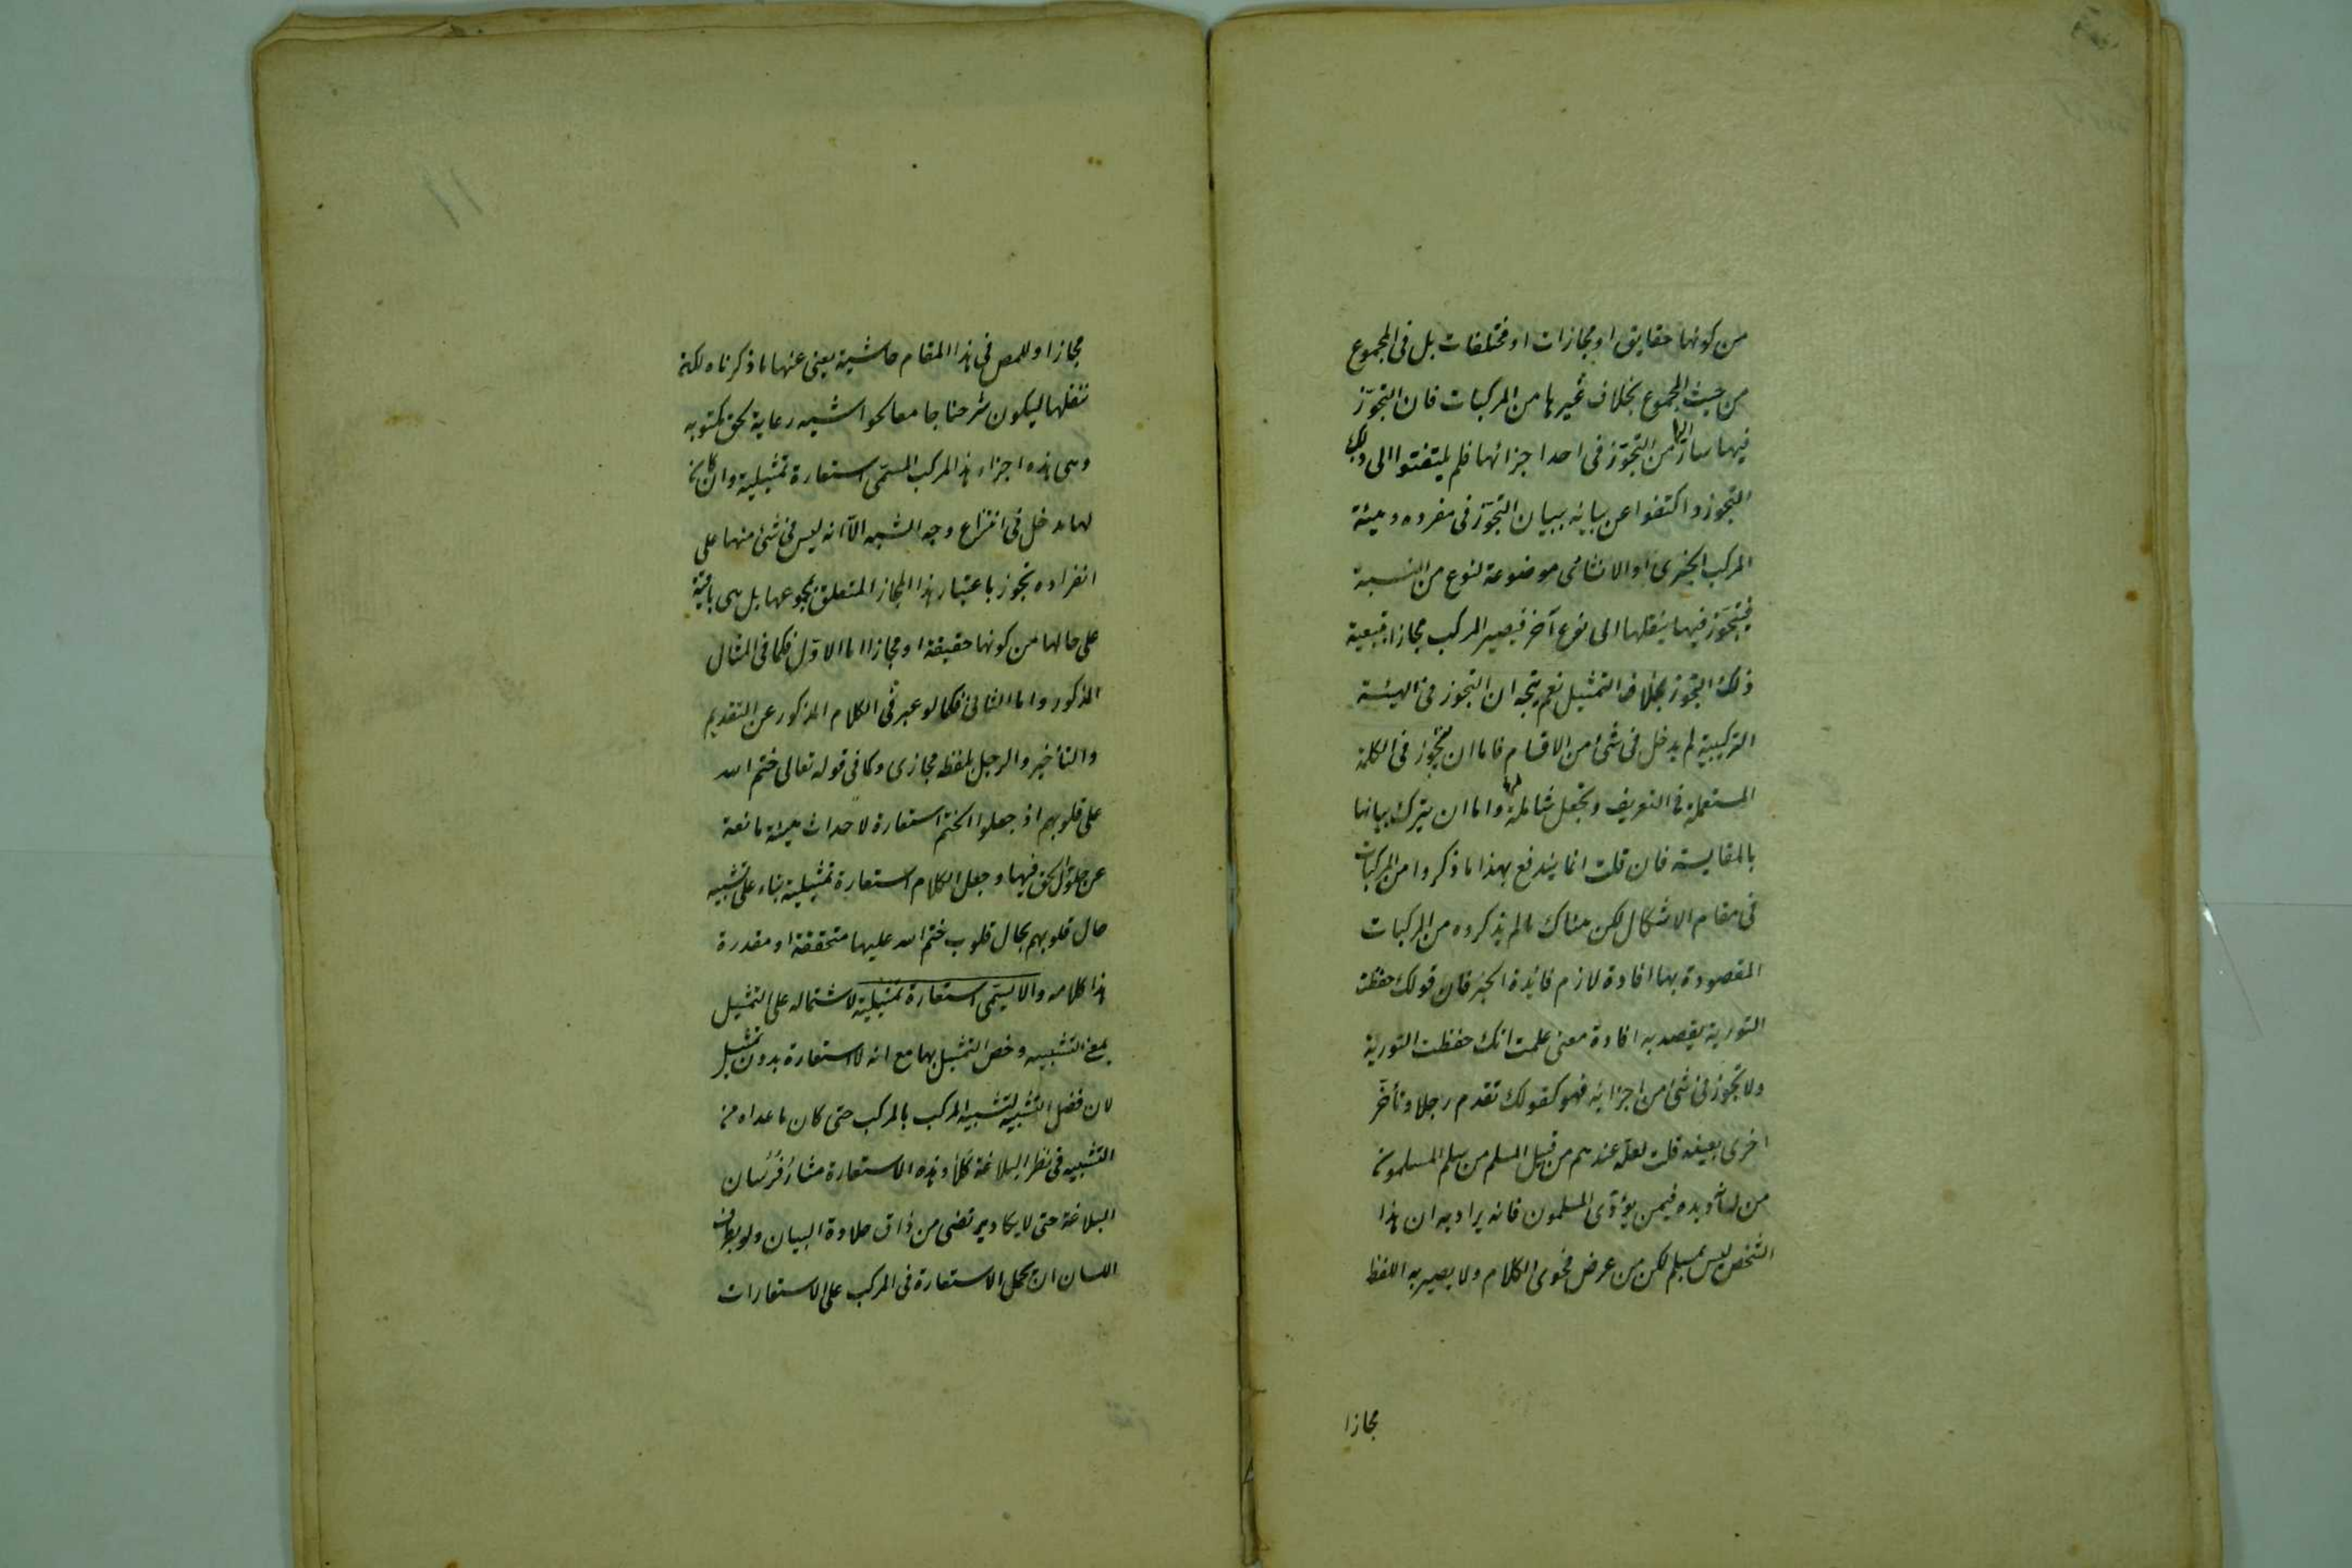 من كونها حقايق او مجازات او مختلفات بل فى المجموع
من حيث المجموع بخلاف غيرها من المركبات فان التجوّز
فيها سار اليها من التجوّز فى احد اجزائها فلم يلتفتوا الى ذلك
التجوز واكتفوا عن بيانه ببيان التجوّز فى مفرده وهيئة
المركب الخبرى او الانشائى موضوعة لنوع من النسبة
فيتجوّز فيها بنقلها الى نوع آخر فيصير المركب مجازا بتبعية
ذلك التجوز بخلاف التمثيل نعم يتجه ان التجوز فى الهيئة
التركيبية لم يدخل فى شئ من الاقسام فاما ان يتجوز فى الكلمة
المستعملة فى التعريف وتجعل شاملة لها واما ان يترك بيانها
بالمقايسة فان قلت انما يندفع بهذا ما ذكروا من المركبات
فى مقام الاشكال لكن هناك ما لم يذكروه من المركبات
المقصودة بها افادة لازم فائدة الخبر فان قولك حفظت
التورية يقصد به افادة معنى علمت انك حفظت التورية
ولا تجوز فى شئ من اجزائه فهو كقولك تقدم رجلا وتأخّر
اخرى بعينه قلت لعله عندهم من قبيل المسلم من سلم المسلمون
من لسانه ويده فيمن يؤذى المسلمون فانه يراد به ان هذا
الشخص ليس بمسلم لكن من عرض فحوى الكلام ولا يصير به اللفظ
مجازا
مجازا وللمص فى هذا المقام حاشية يعنى عنها ما ذكرناه لكنه
ننقلها ليكون شرحنا جامعا لحواشيه رعاية لحق مكتوبه
وهى هذه اجزاء هذا المركب المسمّى استعارة تمثيلية وان كان
لها مدخل فى انتزاع وجه الشبه الّا انه ليس فى شئ منها على
انفراده تجوز باعتبار هذا المجاز المتعلق بمجموعها بل هى باقية
على حالها من كونها حقيقة او مجازا اما الاوّل فكما فى المثال
المذكور واما الثانى فكما لو عبر فى الكلام المذكور عن التقديم
والتأخير والرجل بلفظ مجازى وكما فى قوله تعالى ختم الله
على قلوبهم اذ جعلوا الختم استعارة لاحداث هيئة مانعة
عن حلول الحق فيها وجعل الكلام استعارة تمثيلية بناء على تشبيه
حال قلوبهم بحال قلوب ختم الله عليها متحققة او مقدرة
هذا كلامه والا يسمّى استعارة تمثيلية لاشتماله على التمثيل
بمعنى التشبيه وخص التمثيل بها مع انه لا استعارة بدون تمثيل
لان فضل التشبيه لتشبيه المركب بالمركب حتى كان ما عداه من
التشبيه فى نظر البلاغة كلا وهذه الاستعارة مثار فرسان
البلاغة حتى لا يكاد يرتضى من ذاق حلاوة البيان ولو بطرف
اللسان ان يحمل الاستعارة فى المركب على الاستعارات